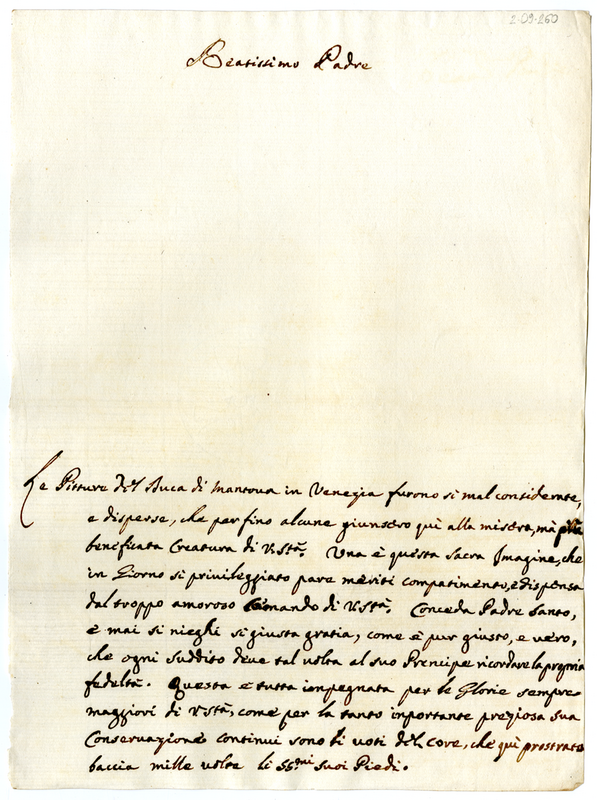 2-09-260
Beatissimo Padre
Le Pitture del Duca di Mantova in Venezia furono si mal considerate,
e disperse, che per fino alcune giunsero quì alla misera, mà più
benificata Creatura di V. Stà. Una è questa sacra Imagine, che
in Giorno si privileggiato pare meriti compatimento, e dispensa
dal troppo amoroso Comando di V. Stà. Conceda Padre Santo,
e mai si nieghi si giusta gratia, come è pur giusto, e vero,
che ogni suddito deve tal volta al suo Prencipe ricordare la propria
fedeltà. Questa è tutta impegnata per le Glorie sempre
maggiori di V. Stà, come per la tanto importante preziosa sua
Conservazione continui sono li voti del core, che quì prostrato
baccia mille volte li SS.mi suoi Piedi.